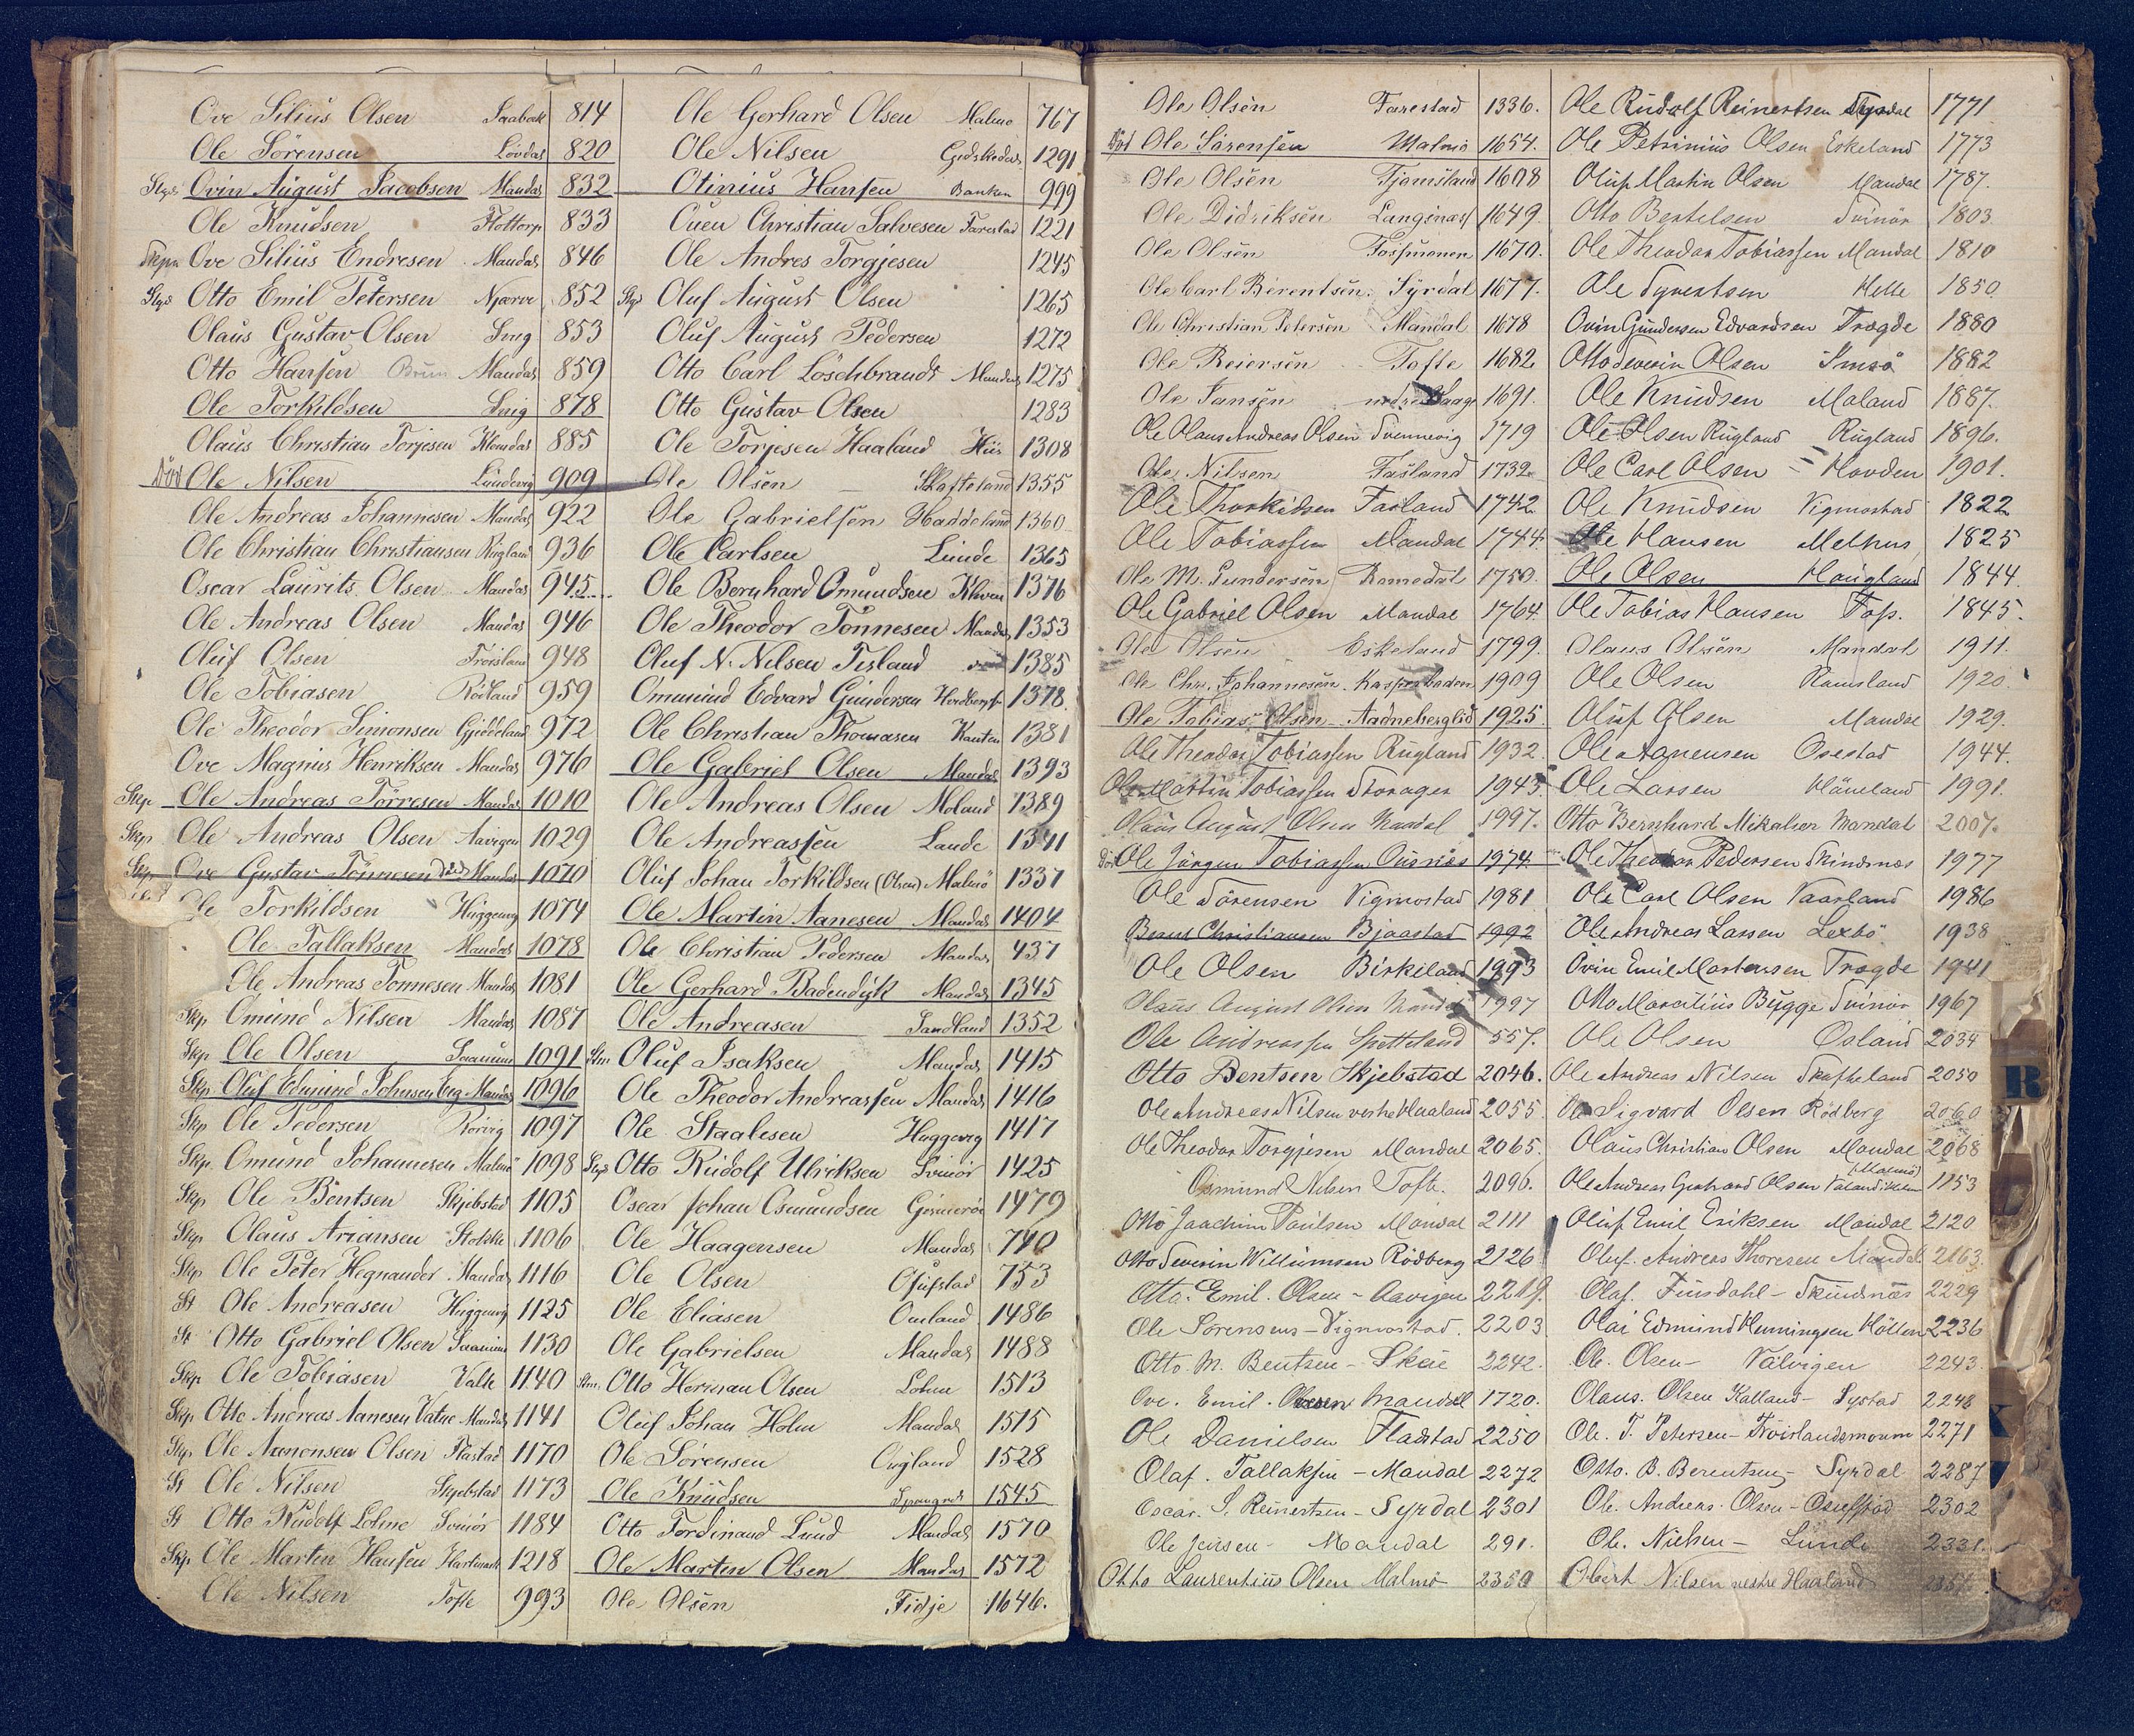 Ove Silius Olsen 814
Ole Sörensen Lövdal 820
Ovin August Jacobsen Mandal 832
Ole Knudsen 833
Ove Silius Endresen Mandal 846
Otto Emil Petersen Njærve 852
Olaus Gustav Olsen 853
Otto Hansen Brun Mandal 859
Ole Torkildsen 878
Olaus Christian Torjesen 885
Död Ole Nilsen Lundevig 909
Ole Andreas Johannesen Mandal 922
Ole Christian Christiansen Rügland 936
Oscar Laurits Olsen Mandal 945
Ole Andreas Olsen Mandal 946
Oluf Olsen Fröisland 948
Ole Tobiasen Rödland 959
Ole Theodor Simonsen Gjiddeland 972
Ove Magnus Henriksen Mandal 976
Skp. Ole Andreas Törresen Mandal 1010
Skp. Ole Andreas Olsen Aavigen 1029
Skp. Ove Gustav Tönnesen död Mandal 1070
Ole Torkildsen 1074
Ole Tallaksen Mandal 1078
Ole Andreas Tönnesen Mandal 1081
Skp. Omund Nilsen Mandal 1087
Skp. Ole Olsen 1091
Skp. Oluf Edmund Johnsen Berg Mandal 1096
Skp. Ole Pedersen Rörvig 1097
Skp. Omund Johannesen Malmö 1098
Skp. Ole Bentsen Skjebstad 1105
Skp. Olaus Ariansen 1106
Skp. Ole Peter Hegnander Mandal 1116
St Ole Andreasen 1125
St Otto Gabriel Olsen 1130
Skp. Ole Tobiasen Valle 1140
Skp. Otto Andreas Aanesen Vatne Mandal 1141
Skp. Ole Aanonsen Olsen 1170
St Ole Nilsen Skjebstad 1173
St Otto Rudolf Lohne Svinör 1184
Skp. Ole Martin Hansen Hartmark 1218
Ole Nilsen Tofte 993
Ole Gerhard Olsen Malmö 767
Ole Nilsen 1291
Otinius Hansen Banken 999
Ouen Christian Salvesen Farestad 1221
Ole Andres Torgjesen 1245
Oluf August Olsen 1265
Oluf August Pedersen 1272
Otto Carl Löschbrandt Mandal 1275
Otto Gustav Olsen 1283
Ole Torjesen Haaland Hiis 1308
Ole Olsen Skafteland 1355
Ole Gabrielsen Haddeland 1360
Ole Carlsen Lunde 1365
Ole Bernhard Omundsen Kleven 1376
Ole Theodor Tönnesen Mandal 1353
Oluf N. Nilsen Tisland 1385
Omund Edvard Gundersen 1378
Ole Christian Thomasen Kanten 1381
Ole Gabriel Olsen Mandal 1393
Ole Andreas Olsen Moland 1389
Ole Andreassen Lande 1341
Oluf Johan Torkildsen (Olsen) Malmö 1337
Ole Martin Aanesen Mandal 1404
Ole Christian Pedersen Mandal 437
Ole Gerhard Badendyk Mandal 1345
Ole Andreasen Sandland 1352
Stm. Oluf Isaksen Mandal 1415
Ole Theodor Andreassen Mandal 1416
Ole Staalesen 1417
Otto Rudolf Ulriksen Svinör 1425
Oscar Johan Osmundsen 1479
Ole Haagensen Mandal 740
Ole Olsen Osufstad 753
Ole Eliasen 1486
Ole Gabrielsen Mandal 1488
Stm. Otto Herman Olsen Lohne 1513
Oluf Johan Holm Mandal 1515
Ole Sörensen 1528
Ole Knudsen 1545
Otto Ferdinand Lund Mandal 1570
Ole Martin Olsen Mandal 1572
Ole Olsen Fidje 1646.
Ole Olsen Farestad 1336.
Död Ole Sörensen Malmö 1654.
Ole Olsen Tjomsland 1608
Ole Didriksen Langenæs 1649.
Ole Olsen Fossmonen 1670.
Ole Carl Berentsen Syrdal 1677.
Ole Christian Petersen Mandal 1678
Ole Reiersen Tofte 1682.
Ole Jansen 1691.
Ole Olaus Andreas Olsen Svennevig 1719
Ole Nilsen Fasland 1732
Ole Thorkildsen Fasland 1742
Ole Tobiassen Mandal 1744
Ole M. Gundersen Ramsdal 1750.
Ole Gabriel Olsen Mandal 1764.
Ole Olsen Eskeland 1799.
Ole Chr. Johannesen 1909
Ole Tobias Olsen Aadneberglid 1925.
Ole Theodor Tobiassen Rugland 1932.
Ole Martin Tobiassen Storager 1943
Olaus August Olsen Mandal 1997.
död Ole Jürgen Tobiassen Ousnæs 1974
Ole Sörensen Vigmostad 1981
Christiansen Bjaastad 1992
Ole Olsen Birkeland 1993
Olaus August Olsen Mandal 1997
Ole Andreassen Spetteland 557.
Otto Bentsen Skjebstad 2046.
Ole Andreas Nilsen vestre Haaland 2055.
Ole Theodor Torgjesen Mandal 2065.
Osmund Nilsen Tofte. 2096.
Otto Joachim Paulsen Mandal 2111
Otto Severin Williumsen Rödberg 2126
Otto. Emil. Olsen - Aavigen 2219.
Ole Sörensens - Vigmostad. 2203
Otto. M. Bentsen - Skeie 2242.
Ove. Emil. Olsen Mandal 1720.
Ole Danielsen Fladstad 2250
Olaf. Tallaksen - Mandal 2272
Oscar. S. Reinertsen - Syrdal 2301
Ole Jensen - Mandal 291.
Otto Laurentius Olsen Malmö 2350
Ole Rudolf Reinertsen Syrdal 1771
Ole Petrinius Olsen Eskeland 1773
Oluf Martin Olsen Mandal 1787.
Otto Bertelsen Svinör 1803
Ole Theodor Tobiassen Mandal 1810
Ole Syvertsen Helle 1850
Ovin Gundersen Edvardsen Trægde 1880
Otto Severin Olsen Imsö 1882
Ole Knudsen Moland 1887.
Ole Olsen Rugland Rugland 1896.
Ole Carl Olsen - Hovden 1901.
Ole Knudsen Vigmostad 1822
Ole Hansen Melhus 1825
Ole Olsen Hougland 1844.
Ole Tobias Hansen Foss. 1845.
Olaus Olsen Mandal 1911.
Ole Olsen Ramsland 1920
Oluf Olsen Mandal 1929.
Ole Aanensen Osestad 1944.
Ole Larsen Haaneland 1991.
Otto Bernhard Mikalsen Mandal 2007.
Ole Theodor Pedersen Skindsnæs 1977
Ole Carl Olsen Vaarland 1986
Ole Andreas Larsen Lexbö 1938
Ovin Emil Mortensen Trægde 1941
Otto Marcilius Bugge Svinör 1967
Ole Olsen Osland 2034
Ole Andreas Nilsen Skafteland 2050
Ole Sigvard Olsen Rödberg 2060
Olaus Christian Olsen Mandal 2068
(Malmö)
Ole Andreas Gerhard Olsen 1153
Oluf Emil Eriksen Mandal 2120
Oluf. Andreas Thoresen Mandal 2163.
Olaf. Finsdahl - Skiudnæs 2229
Olai Edmund Humingsen Holten 2236
Ole. Olsen - Valvigen 2243.
Olaus. Olsen Kalland - Systad 2248
Ole. T. Petersen - Fröislandsmoum 2271
Otto. B. Berentsen - Syrdal 2287
Ole. Andreas. Olsen - Osufstad 2302
Ole. Nielsen - Lunde 2331.
Obert Nilsen vestre Haaland
R